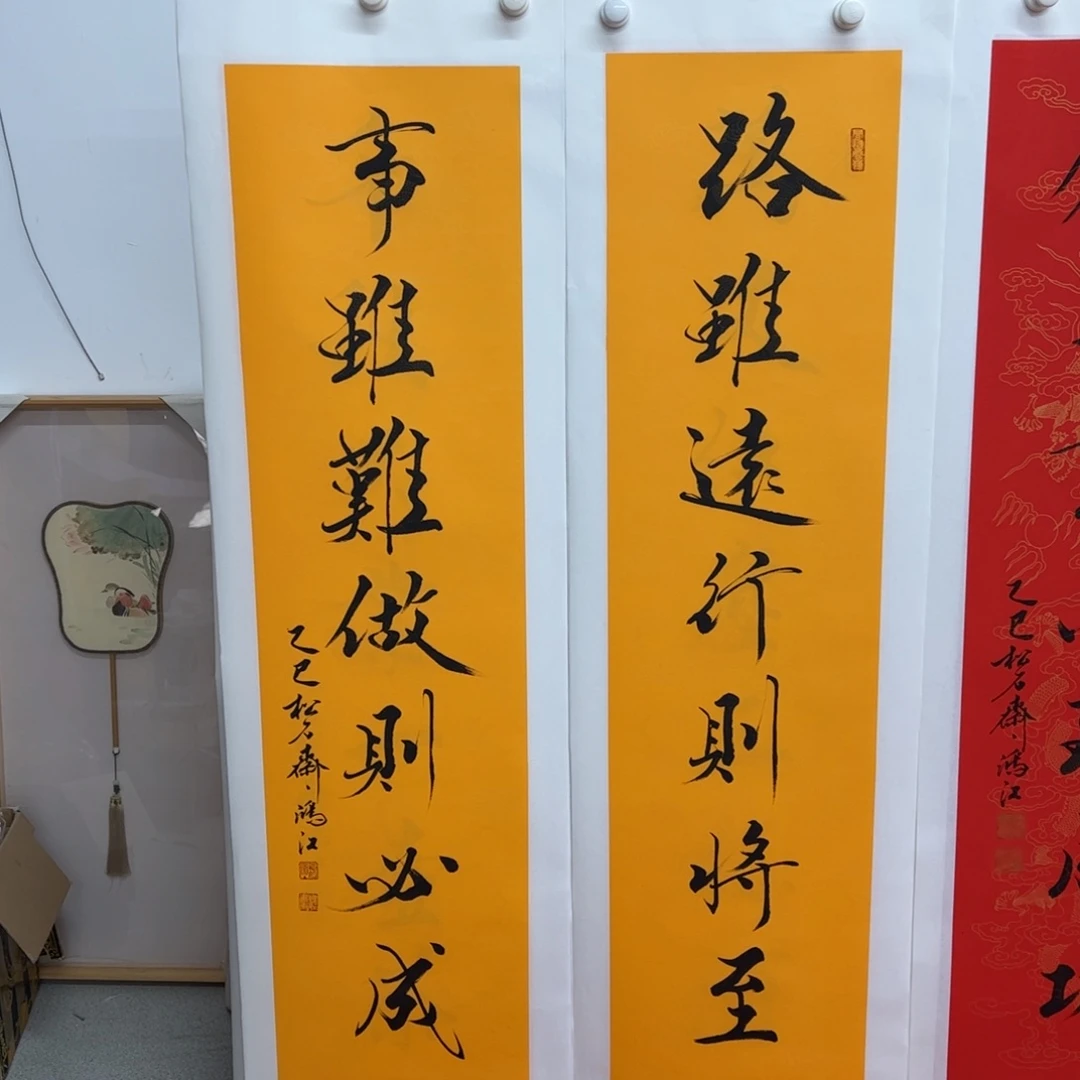 路雖遠行則將至
事雖難做則必成
乙巳松石齋鴻江
乙巳松石齋鴻江